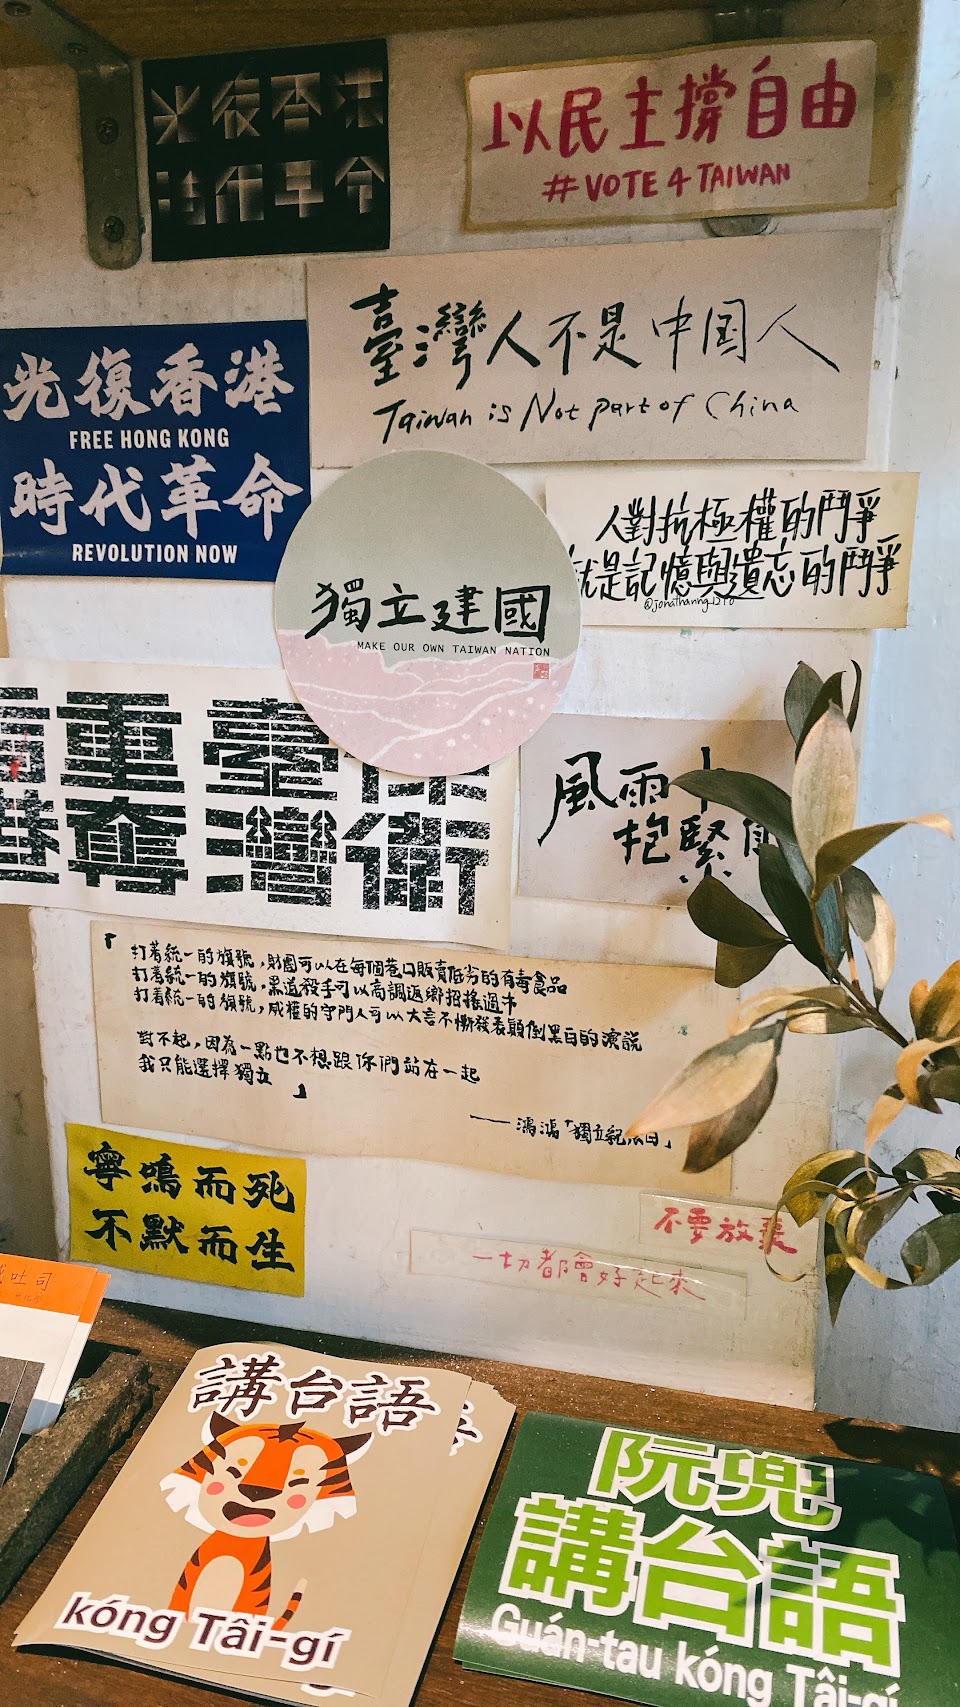 光復香港
時代革命
以民主撐自由
#VOTE4TAIWAN
臺灣人不是中国人
Taiwan is Not part of China
光復香港
FREE HONG KONG
時代革命
REVOLUTION NOW
人對抗極權的鬥爭
就是記憶與遺忘的鬥爭
獨立建國
MAKE OUR OWN TAIWAN NATION
重臺保
港奪灣衛
風雨中
抱緊
「打著統一的旗號，財團可以在每個巷口販賣低劣的有毒食品
打著統一的旗號，黑道殺手可以高調返鄉招搖過市
打著統一的旗號，威權的守門人可以大言不慚發表顛倒黑白的演說
對不起，因為一點也不想跟你們站在一起
我只能選擇獨立
」
——鴻鴻「獨立紀念日」
寧鳴而死
不默而生
不要放棄
一切都會好起來
吐司
講台語
kóng Tâi-gí
阮兜
講台語
Guán-tau kóng Tâi-gí